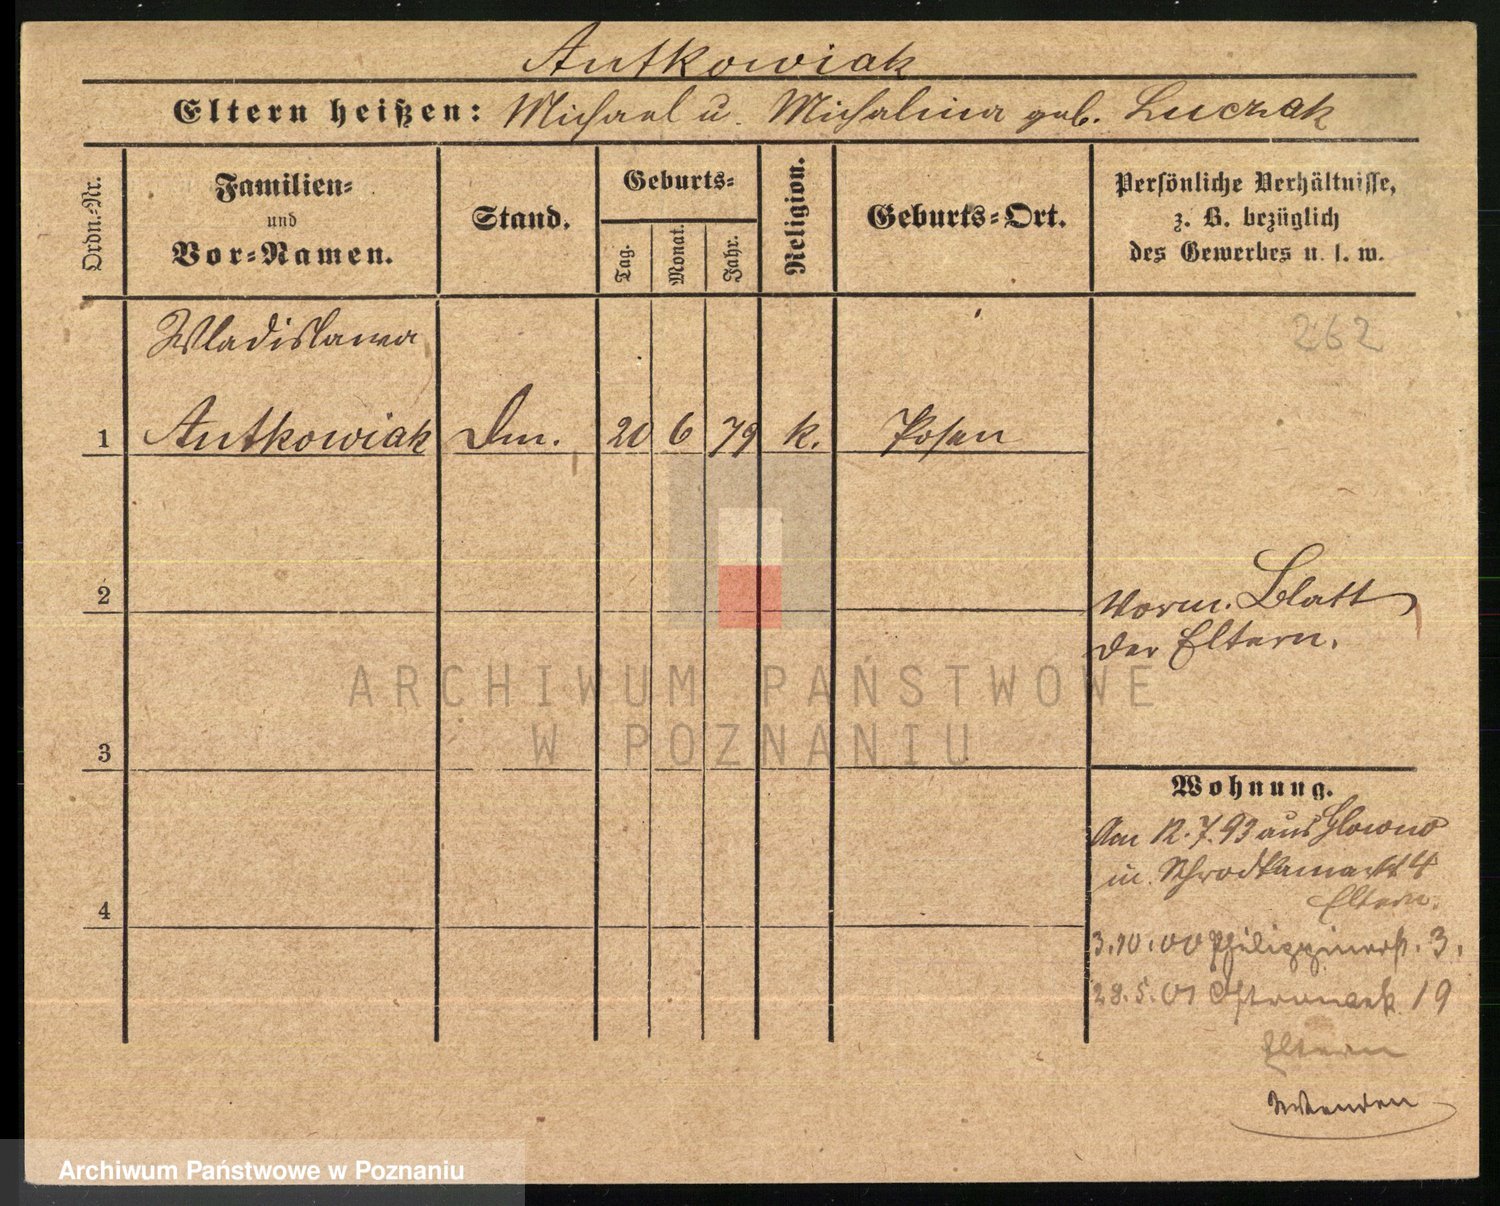 Antkowiak
Eltern heißen: Michael u. Michalina geb. Luczak
Ordn.-Nr.
Familien-
und
Vor-Namen.
Stand.
Geburts-
Tag.
Monat.
Jahr.
Religion.
Geburts-Ort.
Persönliche Verhältnisse,
z. B. bezüglich
des Gewerbes u. s. w.
262
Wladislawa
1 Antkowiak Dm. 20 6 79 k. Posen
2
Vorm. Blatt
der Eltern.
3
Wohnung.
Am 12.7.93 aus Glowno
in Schrodkamarkt 4
Eltern.
4
3.10.00 Philippinerst. 3.
28.5.01 Ostrowek 19
Eltern
Wenden
ARCHIWUM PAŃSTWOWE
W POZNANIU
Archiwum Państwowe w Poznaniu